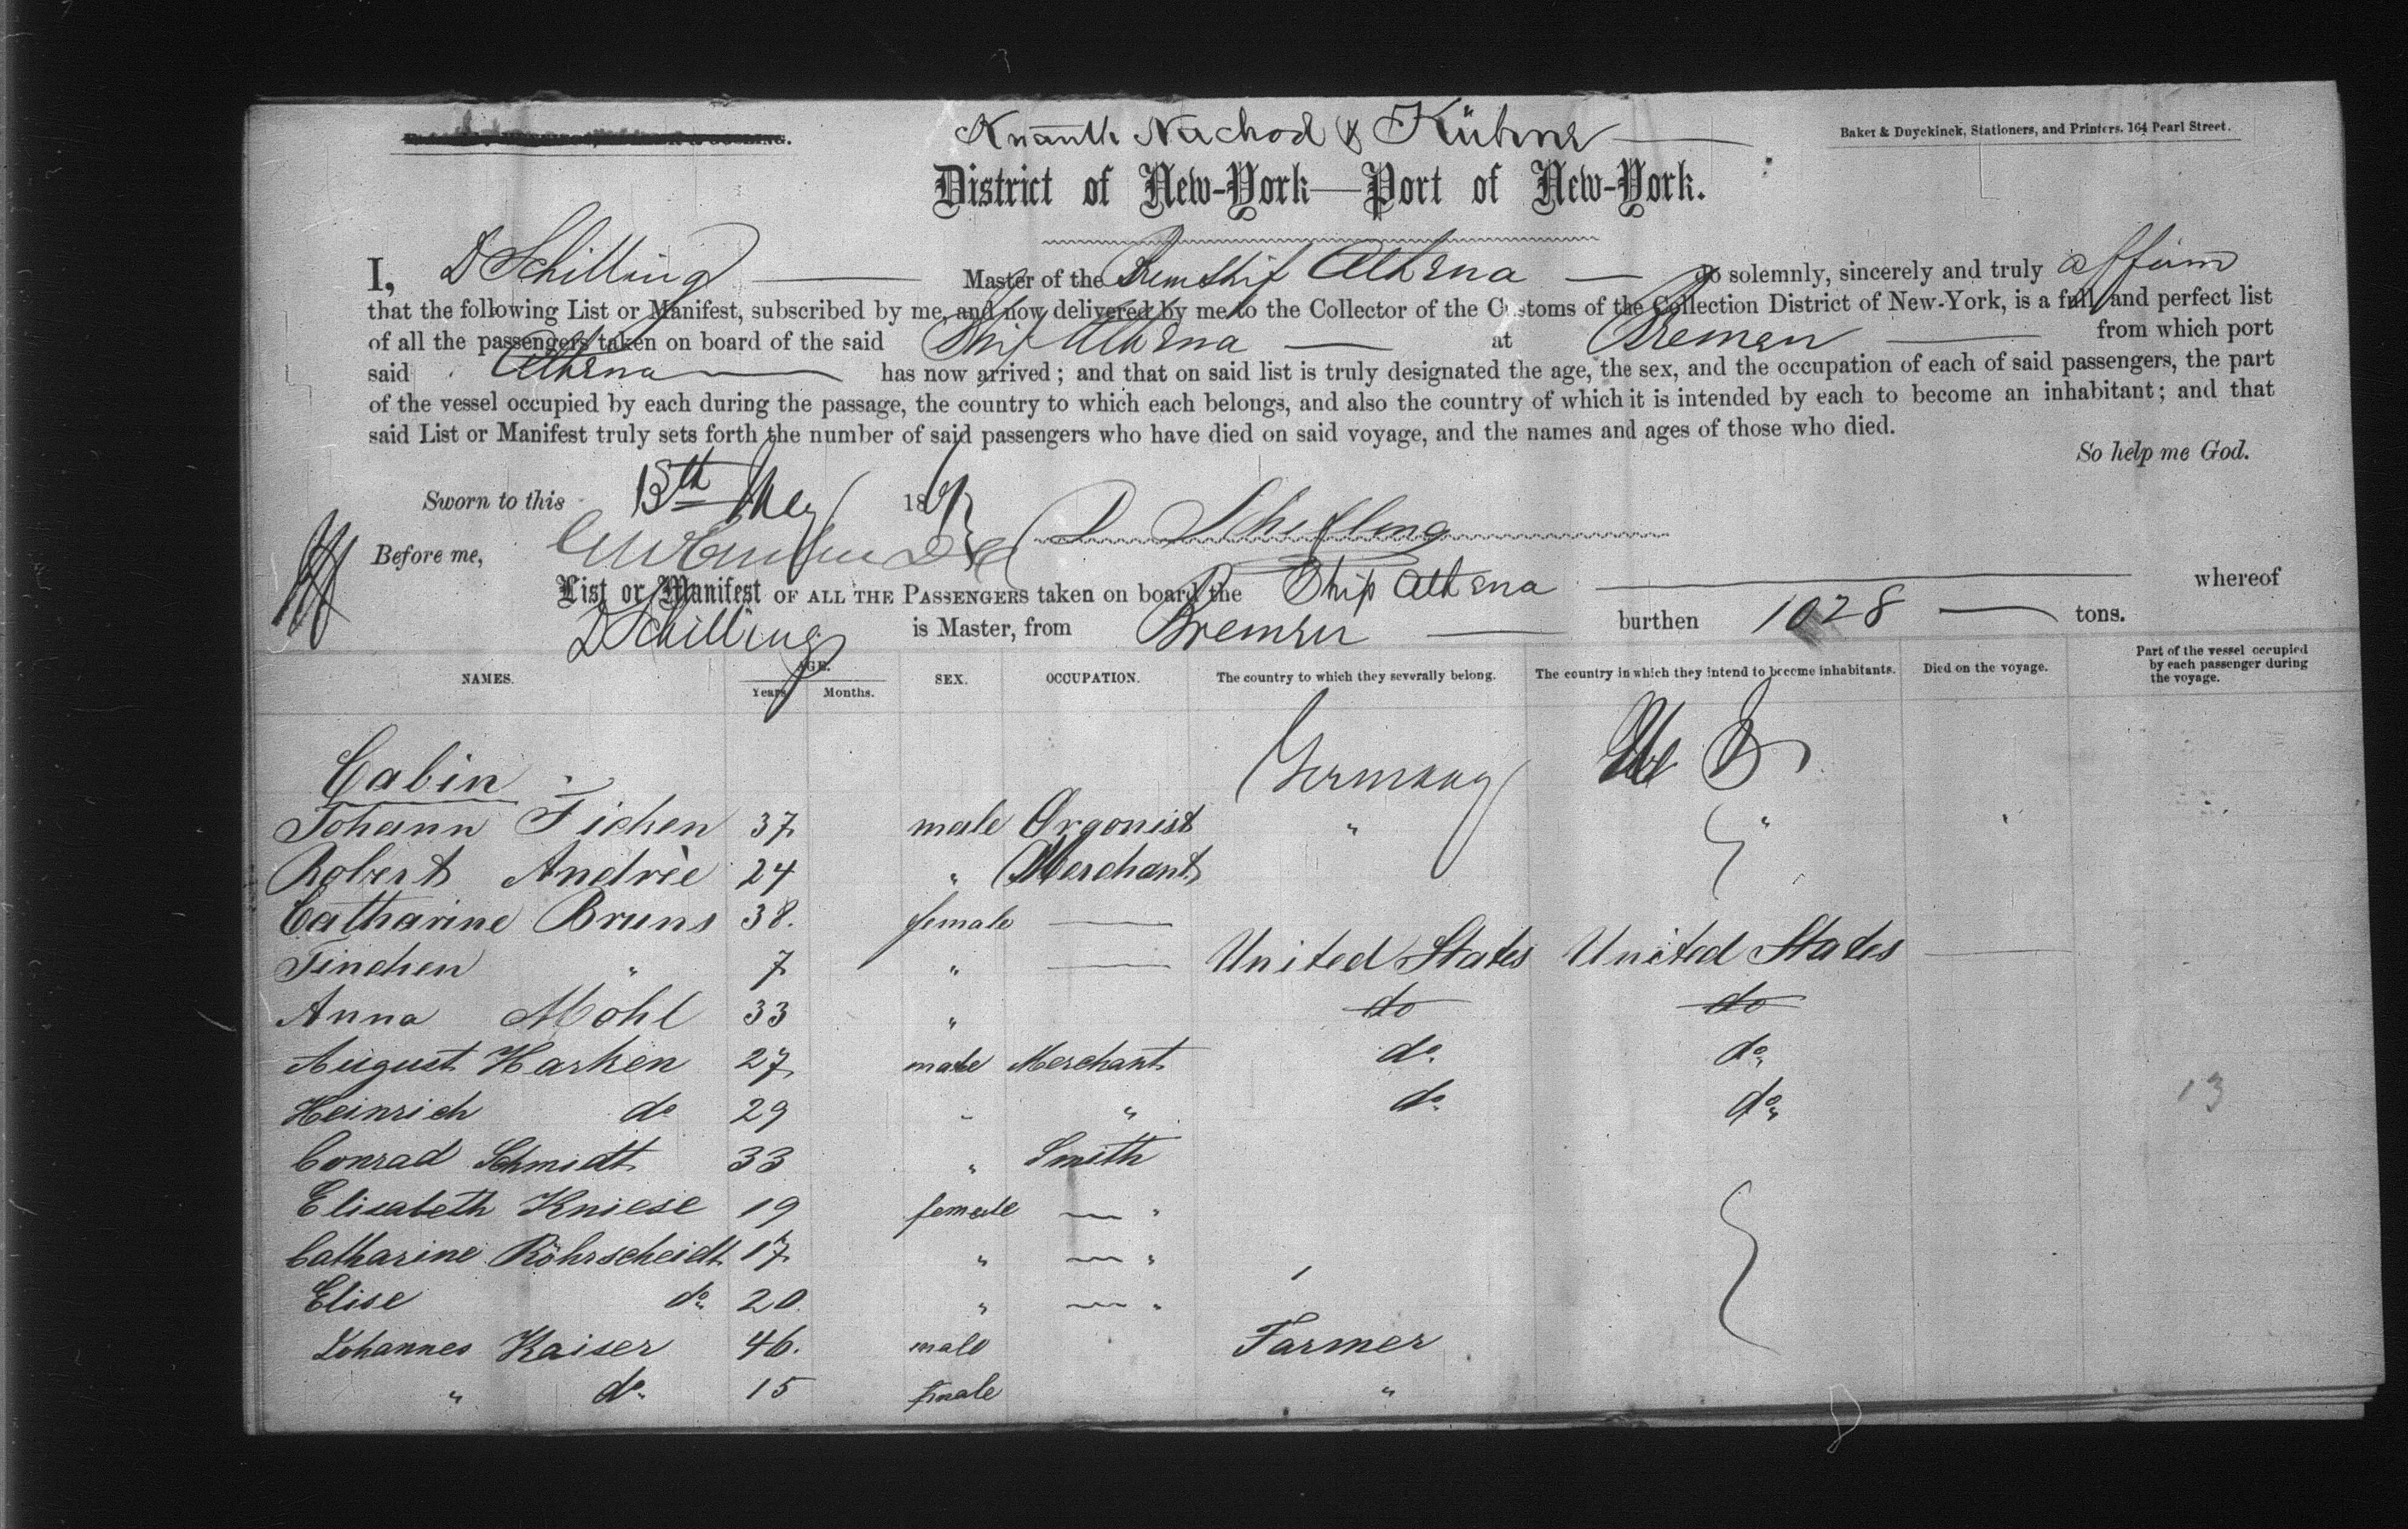 Knauth Nachod & Kühne
Baker & Duyckinck, Stationers, and Printers. 164 Pearl Street.
District of New-York—Port of New-York.
I, D Schilling Master of the Brem Ship Athena do solemnly, sincerely and truly affirm
that the following List or Manifest, subscribed by me, and now delivered by me to the Collector of the Customs of the Collection District of New-York, is a full and perfect list
of all the passengers taken on board of the said Ship Athena at Bremen from which port
said Athena has now arrived; and that on said list is truly designated the age, the sex, and the occupation of each of said passengers, the part
of the vessel occupied by each during the passage, the country to which each belongs, and also the country of which it is intended by each to become an inhabitant; and that
said List or Manifest truly sets forth the number of said passengers who have died on said voyage, and the names and ages of those who died.
So help me God.
Sworn to this 13th May 186
Before me, D Schilling
List or Manifest OF ALL THE PASSENGERS taken on board the Ship Athena whereof
D Schilling is Master, from Bremen burthen 1028 tons.
NAMES. AGE. Years Months. SEX. OCCUPATION. The country to which they severally belong. The country in which they intend to become inhabitants. Died on the voyage. Part of the vessel occupied by each passenger during the voyage.
Cabin Germany U S
Johann Ficken 37 male Organist " "
Robert Andrèe 24 " Merchant
Catharine Bruns 38. female —
Tinchen " 7 " — United States United States —
Anna Mohl 33 " do do
August Harken 27 male Merchant do. do.
Heinrich do 29 " " do. do. 13
Conrad Schmidt 33 " Smith
Elisabeth Kniese 19 female — "
Catharine Röhrscheidt 17 " — "
Elise do. 20 " — "
Johannes Kaiser 46. male Farmer
" do. 15 female "